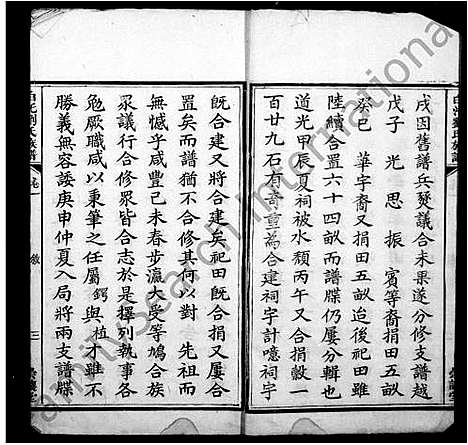 戌因舊譜兵燹議合未果遂分修支譜越
戊子 光 思 振 賓等裔捐田五畝
癸巳 華字裔又捐田五畝迨後祀田雖
陸續合置六十四畝而譜牒仍屢分輯也
道光甲辰夏祠被水頹丙午又合捐穀一
百廿九石有奇重為合建祠宇計噫祠宇
既合建又將合建矣祀田既合捐又屢合
置矣而譜猶不合修其何以對 先祖而
無憾乎咸豐己未春步瀛大受等鳩合族
眾議行合修眾皆合志於是擇列執事各
勉厥職咸以秉筆之任屬 鍔與 植才
勝義無容諉庚申仲夏入局將兩支譜牒
劉氏族譜
卷一
敘
二
familysearch international